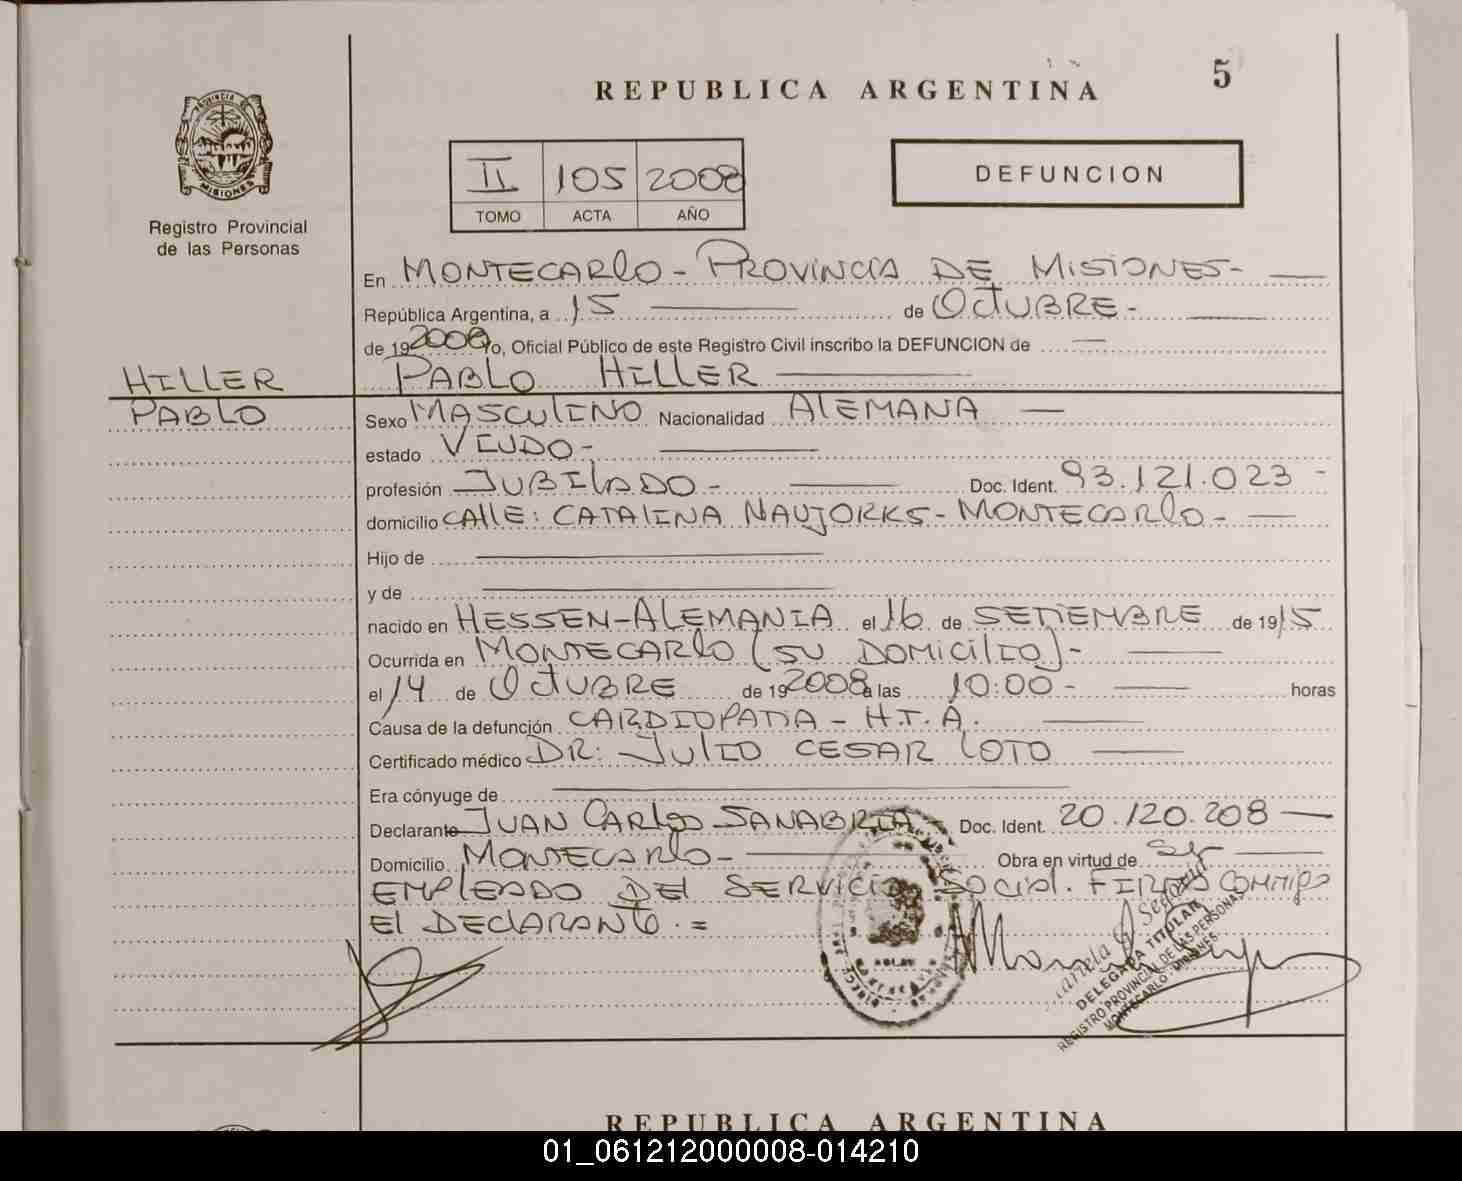 REPUBLICA ARGENTINA
5
PROVINCIA DE
MISIONES
Registro Provincial
de las Personas
II 105 2008
TOMO ACTA AÑO
DEFUNCION
En MONTECARLO - PROVINCIA DE MISIONES -
República Argentina, a 15 de OCTUBRE -
de 19 2008 Yo, Oficial Público de este Registro Civil inscribo la DEFUNCION de
HILLER
PABLO HILLER
PABLO
Sexo MASCULINO Nacionalidad ALEMANA
estado VIUDO -
profesión JUBILADO - Doc. Ident. 93.121.023 -
domicilio CALLE: CATALINA NAUJORKS - MONTECARLO -
Hijo de
y de
nacido en HESSEN - ALEMANIA el 16 de SETIEMBRE de 1915
Ocurrida en MONTECARLO (SU DOMICILIO) -
el 14 de OCTUBRE de 19 2008 a las 10:00 - horas
Causa de la defunción CARDIOPATIA - H.T.A.
Certificado médico DR: JULIO CESAR LOTO
Era cónyuge de
Declarante JUAN CARLOS SANABRIA Doc. Ident. 20.120.208
Domicilio MONTECARLO - Obra en virtud de Ser
EMPLEADO DEL SERVICIO SOCIAL. FIRMA CONMIGO
EL DECLARANTE. =
DELEGADA TITULAR
REGISTRO PROVINCIAL DE LAS PERSONAS
MONTECARLO - MISIONES
REPUBLICA ARGENTINA
01_061212000008-014210